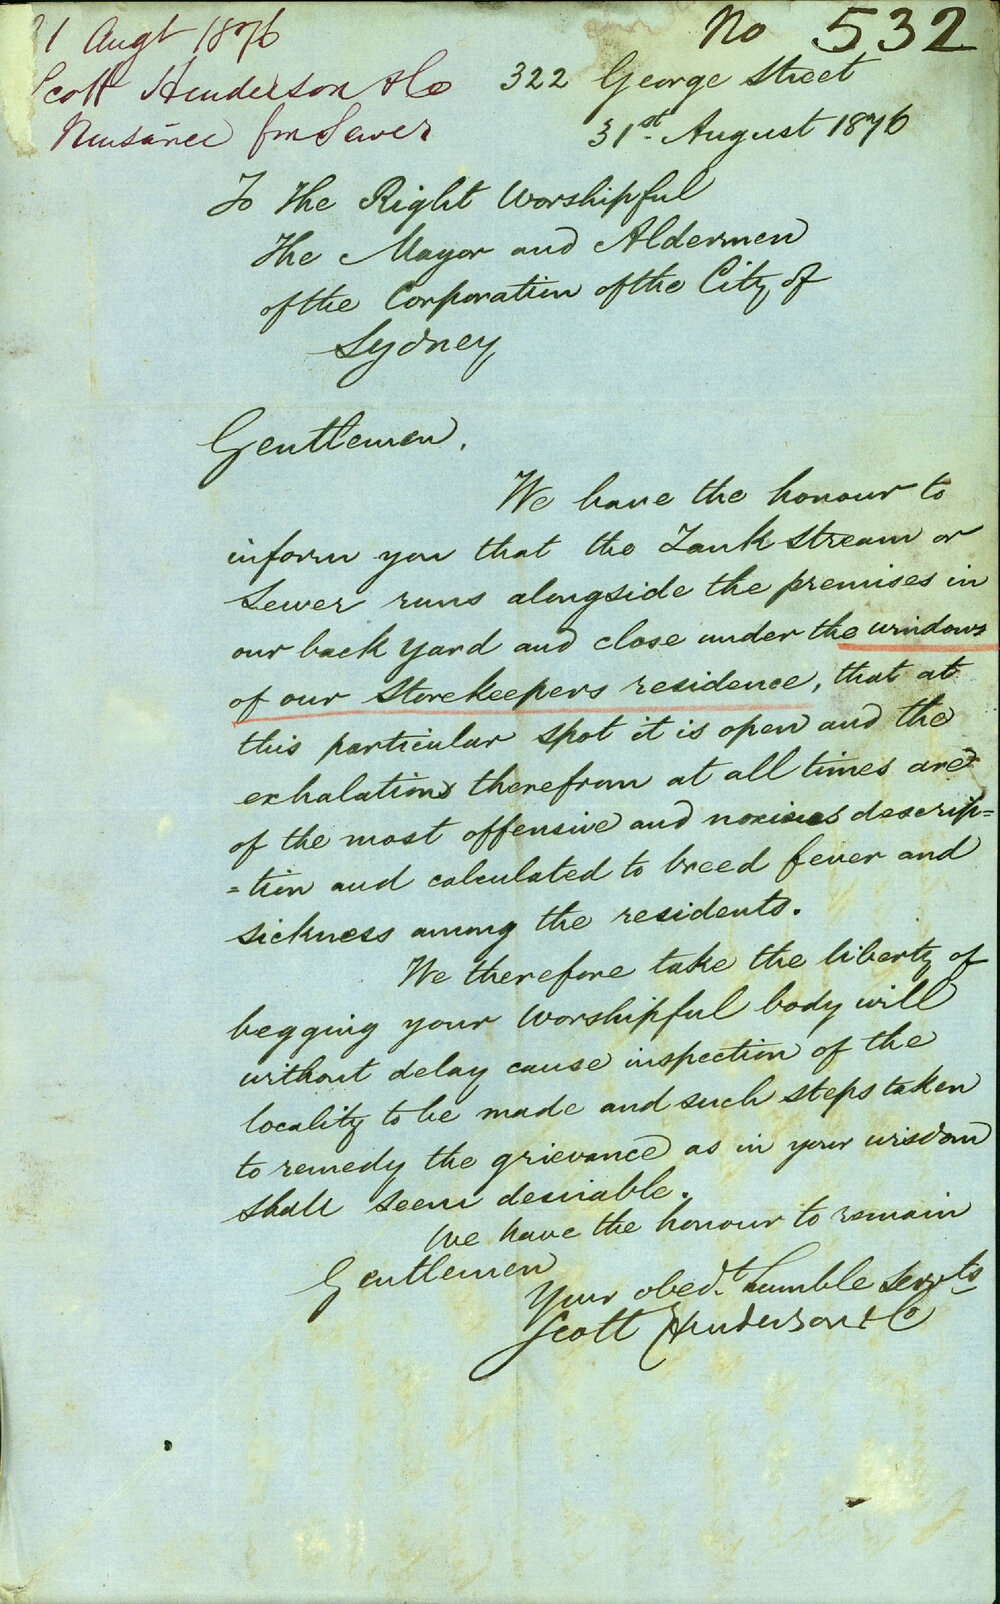 31 Augt 1876
Scott Henderson & Co
Nuisance fm Sewer
No 532
322 George Street
31st August 1876
To The Right Worshipful
The Mayor and Aldermen
of the Corporation of the City of
Sydney
Gentlemen,
We have the honour to
inform you that the Tank Stream or
Sewer runs alongside the premises in
our back yard and close under the windows
of our Storekeepers residence, that at
this particular spot it is open and the
exhalations therefrom at all times are
of the most offensive and noxious descrip=
=tion and calculated to breed fever and
sickness among the residents.
We therefore take the liberty of
begging your Worshipful body will
without delay cause inspection of the
locality to be made and such steps taken
to remedy the grievance as in your wisdom
shall seem desirable.
We have the honour to remain
Gentlemen
Your obedt. humble servts
Scott Henderson & Co